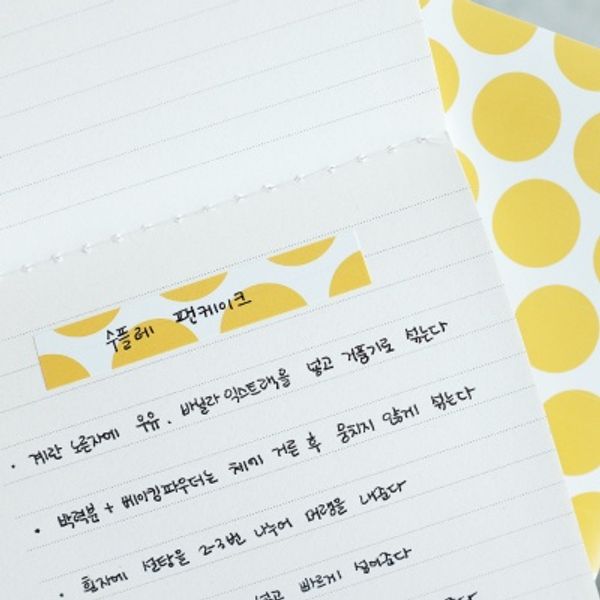 수플레 팬케이크
· 계란 노른자에 우유. 바닐라익스트랙을 넣고 거품기로 섞는다
· 박력분 + 베이킹파우더는 체에 거른 후 뭉치지 않게 섞는다
· 흰자에 설탕을 2-3번 나누어 머랭을 내준다
넣고 빠르게 섞어준다